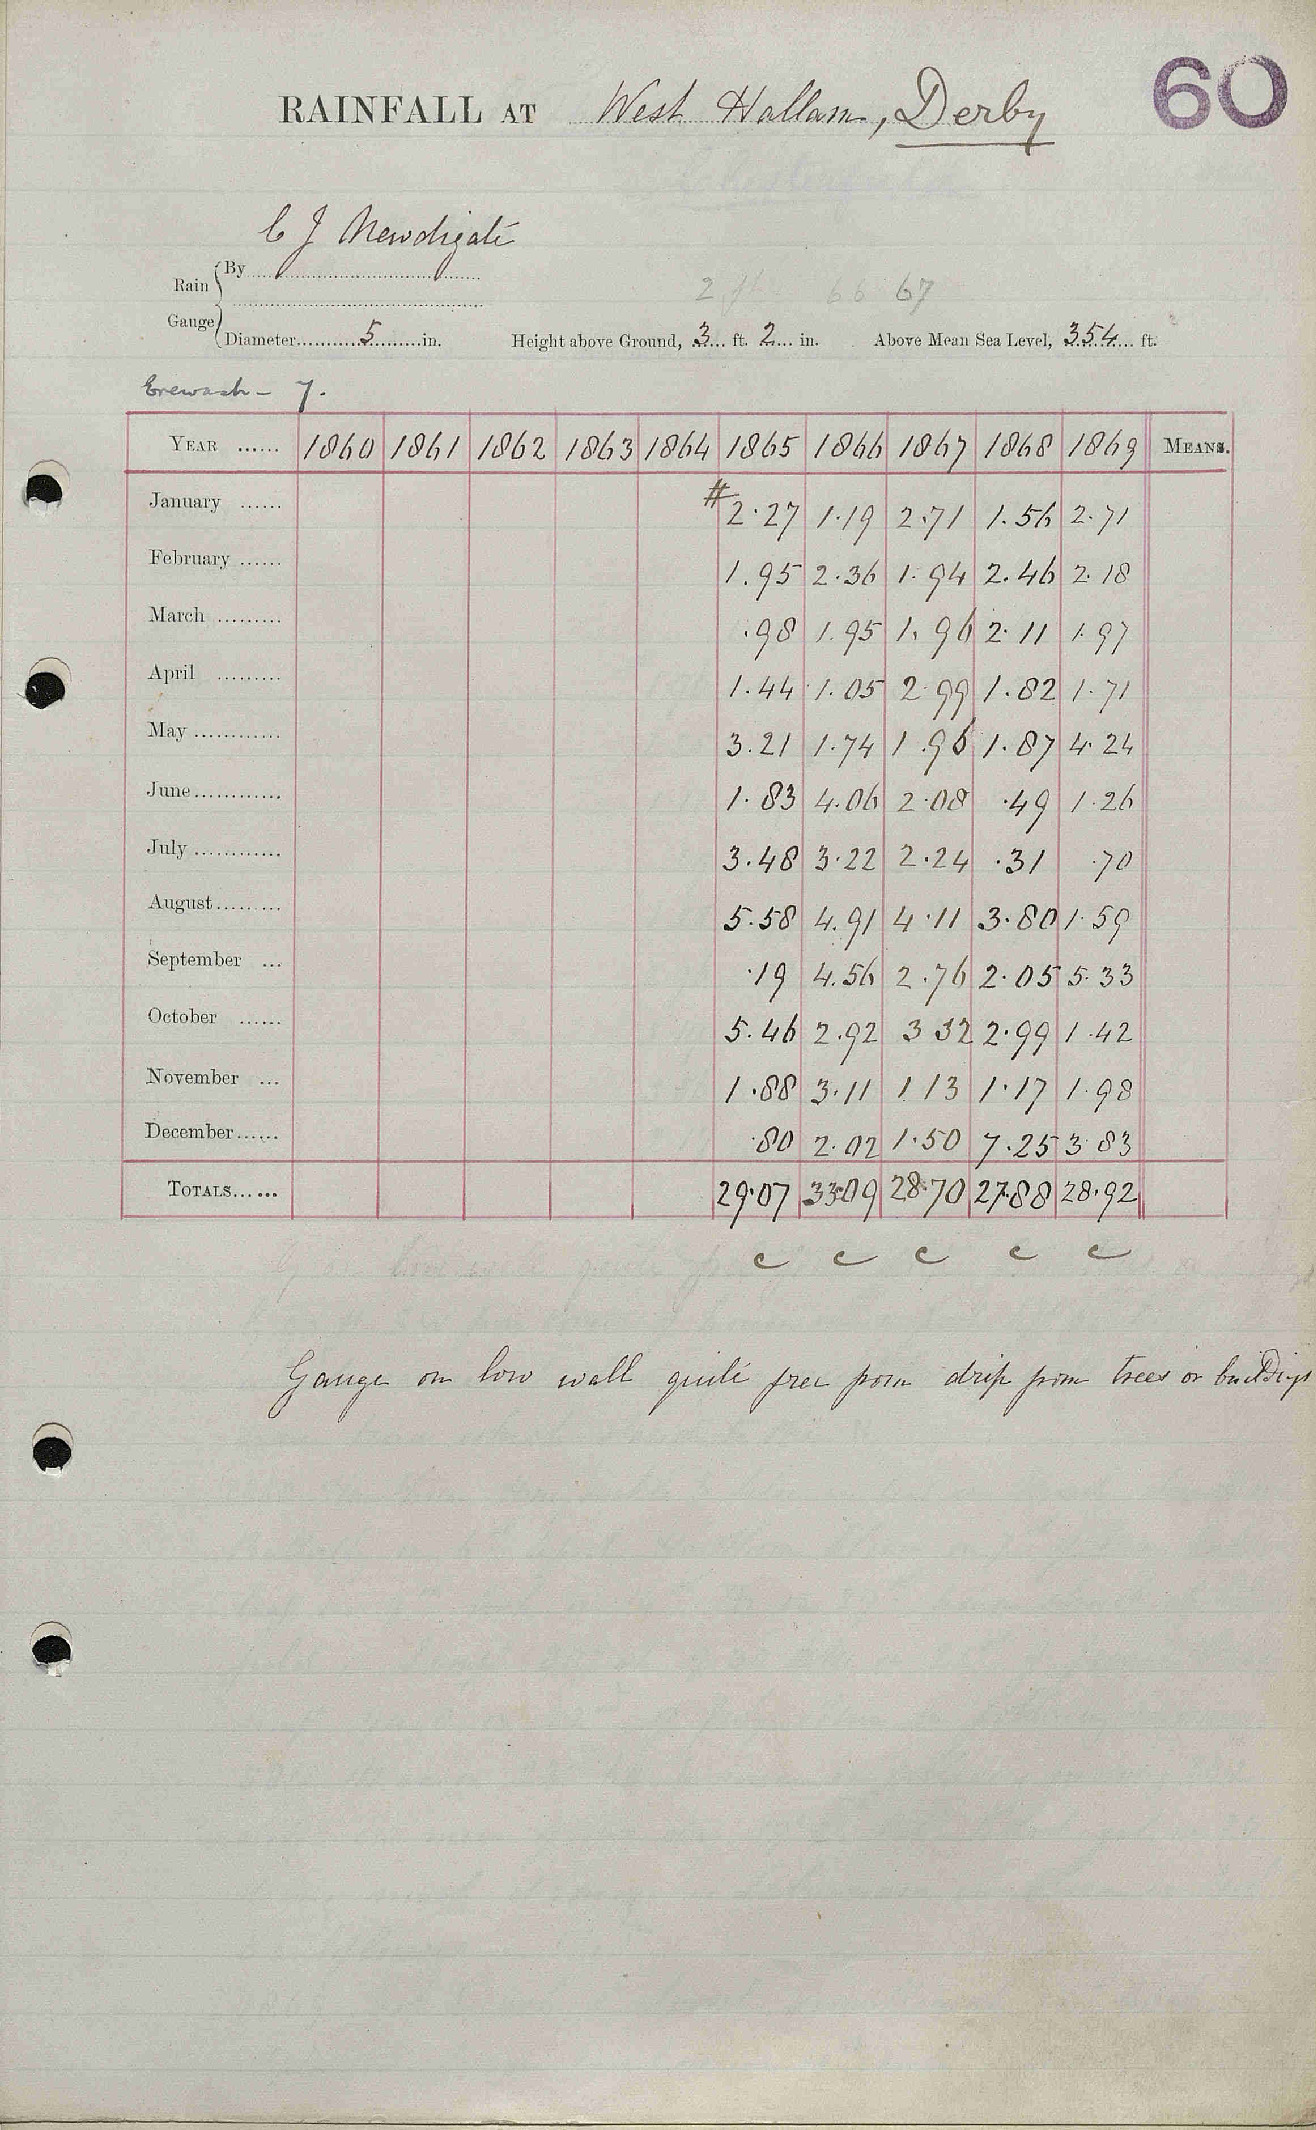 RAINFALL AT West Hallam, Derby
60
C J Newdigate
Rain Gauge
By
2 ft 66 67
Diameter 5 in.
Height above Ground, 3 ft. 2 in.
Above Mean Sea Level, 354 ft.
Erewash - 7.
YEAR ...... 1860 1861 1862 1863 1864 1865 1866 1867 1868 1869 MEANS.
January ...... # 2.27 1.19 2.71 1.56 2.71
February ...... 1.95 2.36 1.94 2.46 2.18
March ......... .98 1.95 1.96 2.11 1.97
April ......... 1.44 1.05 2.99 1.82 1.71
May ............ 3.21 1.74 1.96 1.87 4.24
June ............ 1.83 4.06 2.08 .49 1.26
July ............ 3.48 3.22 2.24 .31 .70
August ......... 5.58 4.91 4.11 3.80 1.59
September ... .19 4.56 2.76 2.05 5.33
October ...... 5.46 2.92 3 32 2.99 1.42
November ... 1.88 3.11 1 13 1.17 1.98
December ...... .80 2.02 1.50 7.25 3 83
TOTALS ...... 29.07 33.09 28.70 27.88 28.92
c c c c c
Gauge on low wall quite free from drip from trees or buildings